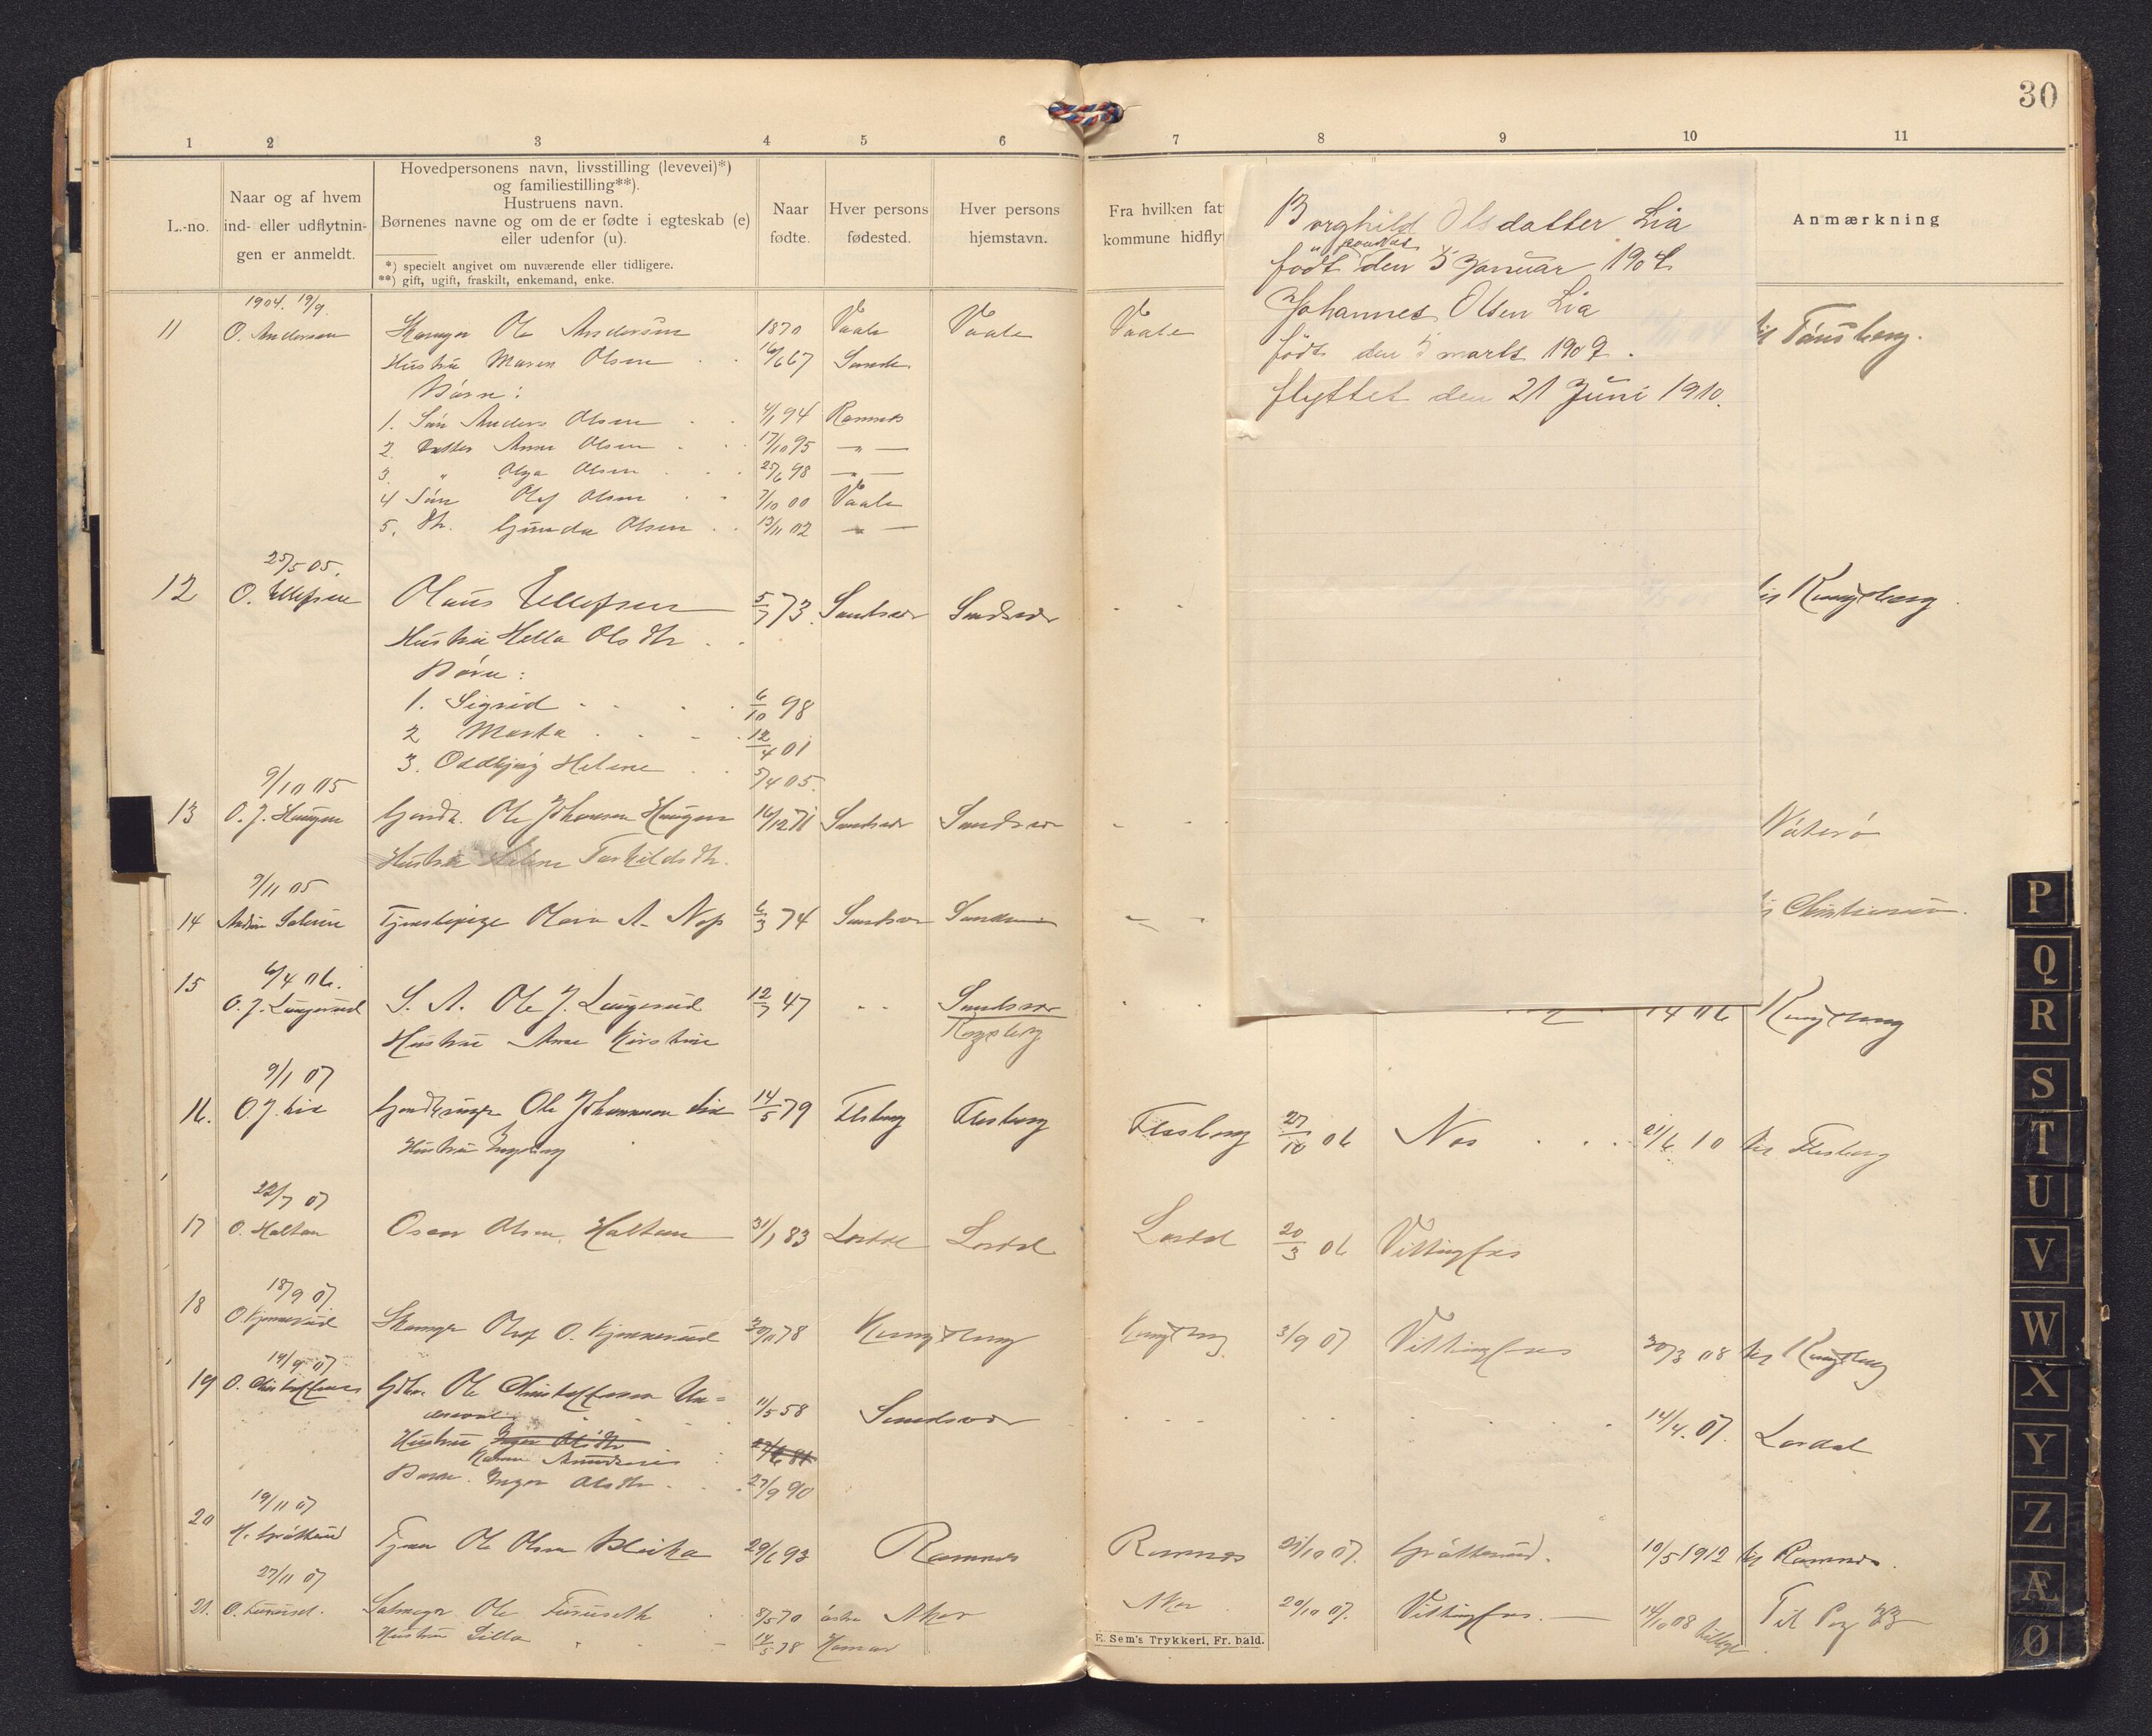 30
1 2 3 4 5 6 7 8 9 10 11
L.-no.
Naar og af hvem
ind- eller udflytnin-
gen er anmeldt.
Hovedpersonens navn, livsstilling (levevei)*)
og familiestilling**).
Hustruens navn.
Børnenes navne og om de er fødte i egteskab (e)
eller udenfor (u).
*) specielt angivet om nuværende eller tidligere.
**) gift, ugift, fraskilt, enkemand, enke.
Naar
fødte.
Hver persons
fødested.
Hver persons
hjemstavn.
Fra hvilken fat
kommune hidfly
Anmærkning
Borghild Olsdatter Lia
født den 5 Januar 1904
Johannes Olsen Lia
født den 5 marts 1907.
flyttet den 21 Juni 1910.
1904. 19/9.
11 O. Andersen Ole Andersen 1870 Vaale Vaale Vaale til Tønsberg.
Hustru Maren Olsen 67 Sande
Børn:
1. Søn Anders Olsen 94 Ramnes
2. Datter Anna Olsen 17/10 95 — " —
3. " Olga Olsen 25/6 98 — " —
4 Søn Olaf Olsen 7/10 00 Vaale
5. Dtr. Gunda Olsen 13/11 02 — " —
25/5 05.
12 O. Ellefsen Olaus Ellefsen 5/7 73 Sandsvær Sandsvær til Kongsberg
Hustru Hella Olsdtr
Børn:
1. Sigrid 6/10 98
2 Marta 12/4 01
3. Oddbjørg Helene 5/4 05.
9/10 05
13 O. J. Haugen Ole Johansen Haugen 16/12 71 Sandsvær Sandsvær Nøterø
Hustru Helene Torkildsdtr.
9/11 05
14 Tjenestepige A. 6/3 74 Sandsvær Christiania.
6/4 06.
15 O. J. Laugerud S. A. Ole J. Laugerud 12/7 47 Sandsvær 06 Kongsberg
Kongsberg
Hustru Anne Kirstine
9/1 07
16. O. J. Lia Ole Johannesen Lia 14/5 79 Flesberg Flesberg Flesberg 27/10 06 Nos 21/6 10 til Flesberg
Hustru Ingeborg
22/7 07
17 O. Haltan Olsen Haltan 31/1 83 Lardal Lardal Lardal 20/3 06 Vittingfos
18/9 07.
18 O. Olaf O. 78 Kongsberg Kongsberg 3/9 07 Vittingfos 30/3 08 til Kongsberg
19/9 07
19 O. Christoffersen Gdbr. Ole Christoffersen Un=
11/5 58 Sandsvær 14/4. 07. Lardal
Hustru Inger Olsdtr
Karen
Børn. Inger Olsdtr. 27/9 90
19/11 07
20 Tjener Ole Olsen 29/6 93 Ramnes Ramnes 07. 10/5 1912 til Ramnes.
27/11 07
21. O. Furuset. Ole Furuseth 8/5 70 østre Aker Aker 20/10 07. Vittingfos. — 14/10 08 Til Pag 33
Hustru Lilla 14/5 78 Hamar
E. Sem's Trykkeri, Fr. hald.
P
Q
R
S
T
U
V
W
X
Y
Z
Æ
Ø